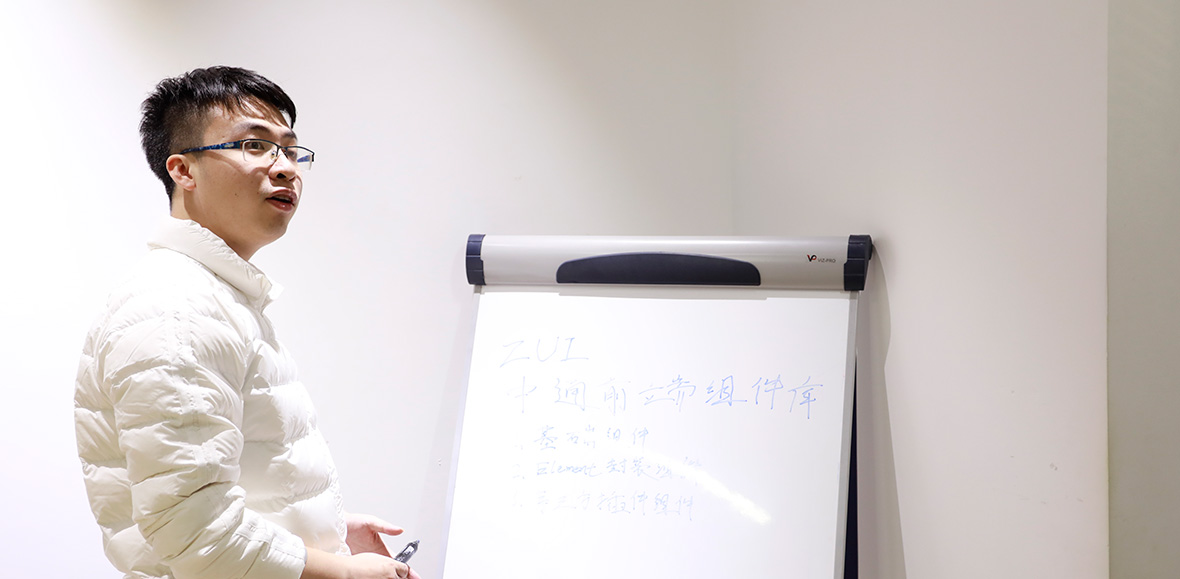 VIZ-PRO
ZUI
中通前端组件库
1. 基础组件
2. Element封装
3. 第三方插件组件